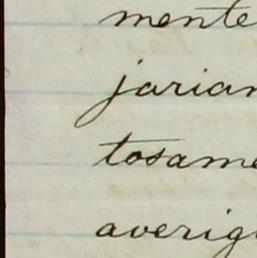 mente
jarian
tosame
averig